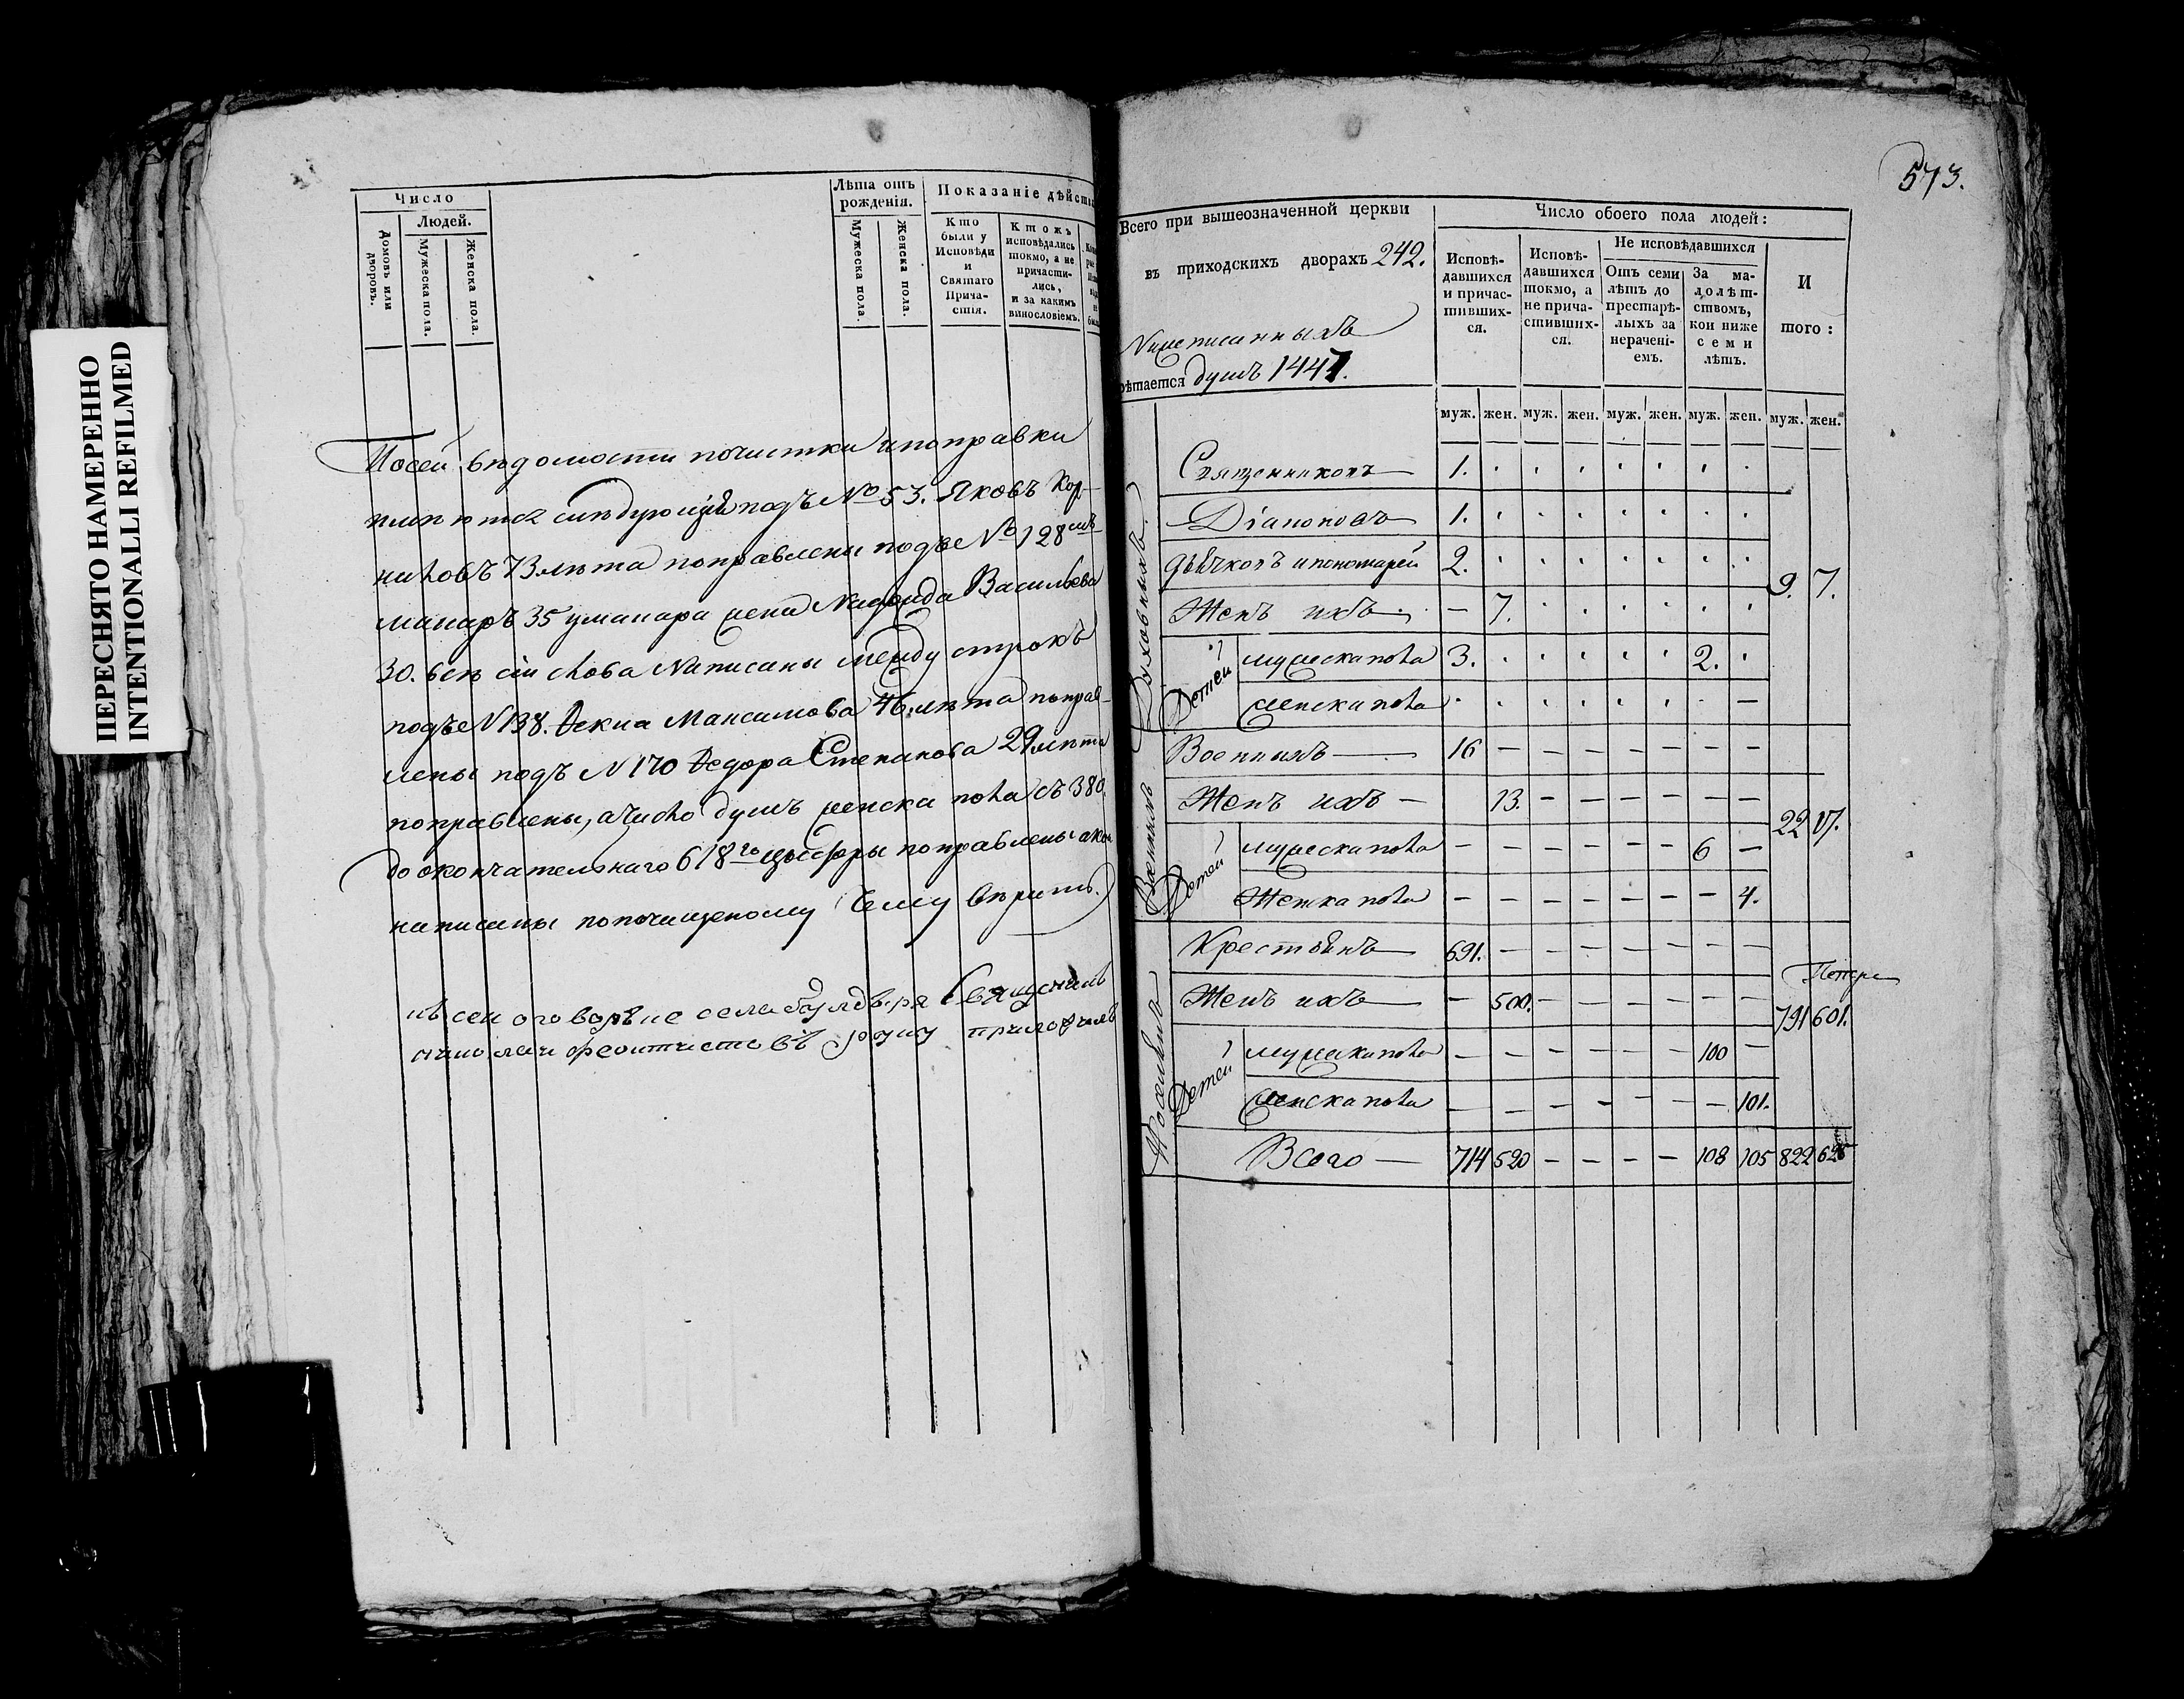 ПЕРЕСНЯТО НАМЕРЕННО
INTENTIONALLI REFILMED
Число
Людей.
Домовъ или дворовъ.
Мужеска пола.
Женска пола.
Лѣта отъ рожденія.
Мужеска пола.
Женска пола.
Показаніе дѣйст
Кто были у Исповѣди и Святаго Прича-стія.
Ктожъ исповѣдались токмо, а не причасти-лись, и за какимъ винословіемъ.
Посей вѣдомости почистки ипоправки
имѣются слѣдующія подъ № 53. Яковъ Кор-
ниловъ 73 лѣта поправлены подъ № 128мъ
макаръ 35 умакара жена Васильева
30. всѣ сіи слова написаны между строкъ
подъ № 138. Ѳекла Максимова 46. лѣта поправ-
лены подъ № 170 Ѳедора Степанова 29 лѣта
поправлены, ачисло душъ женска пола съ 380.
до окончательнаго 618го цыфры поправлены
написаны попочищеному чему вѣрить.
къ сей оговоркѣ села Священникъ
николай руку приложилъ
573.
Всего при вышеозначенной церкви
въ приходскихъ дворахъ 242.
Написанныхъ
ѣтается душъ 1447.
Число обоего пола людей:
Исповѣ-давшихся и причас-тивших-ся.
Исповѣ-давшихся токмо, а не прича-стивших-ся.
Не исповѣдавшихся
Отъ семи лѣтъ до престарѣ-лыхъ за нерачені-емъ.
За ма-лолѣт-ствомъ, кои ниже семи лѣтъ.
И того:
муж. жен. муж. жен. муж. жен. муж. жен. муж. жен.
Духовныхъ.
Священниковъ 1.
Діаконовъ 1.
дьячковъ ипономарей 2.
9. 7.
Женъ ихъ — 7.
Детей
мужеска пола 3. 2.
женска пола —
Военныхъ
Военныхъ — 16 — — — — — — —
Женъ ихъ — 13. — — — — — —
22 17.
Детей
мужеска пола — — — — — — 6 —
Женска пола — — — — — — — 4.
Поселянъ
Крестьянъ — 691. — — — — — — —
Женъ ихъ — — 500. — — — — — —
791 601.
Детей
мужеска пола — — — — — — 100 —
женска пола — — — — — — — 101.
Всего — 714 520 — — — — 108 105 822 625